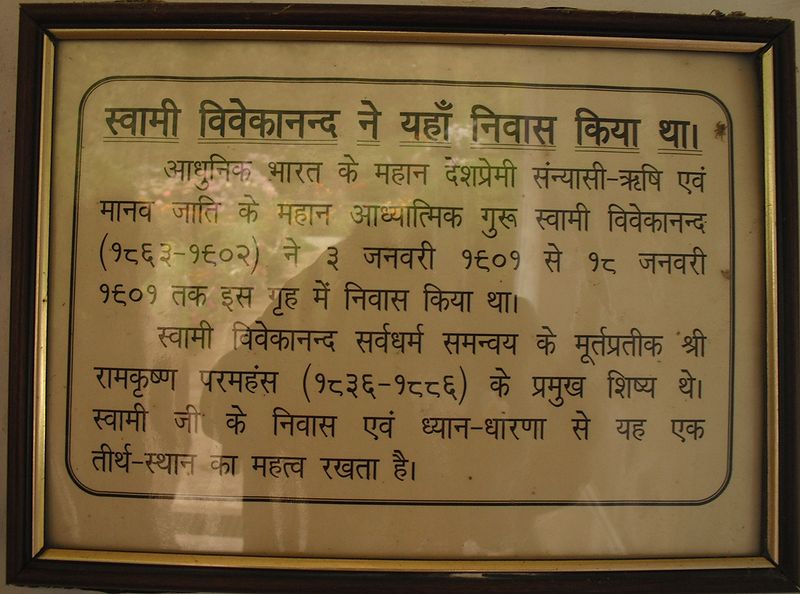 स्वामी विवेकानन्द ने यहाँ निवास किया था।
आधुनिक भारत के महान देशप्रेमी संन्यासी-ऋषि एवं
मानव जाति के महान आध्यात्मिक गुरू स्वामी विवेकानन्द
(१८६३-१९०२) ने ३ जनवरी १९०१ से १८ जनवरी
१९०१ तक इस गृह में निवास किया था।
स्वामी विवेकानन्द सर्वधर्म समन्वय के मूर्तप्रतीक श्री
रामकृष्ण परमहंस (१८३६-१८८६) के प्रमुख शिष्य थे।
स्वामी जी के निवास एवं ध्यान-धारणा से यह एक
तीर्थ-स्थान का महत्व रखता है।